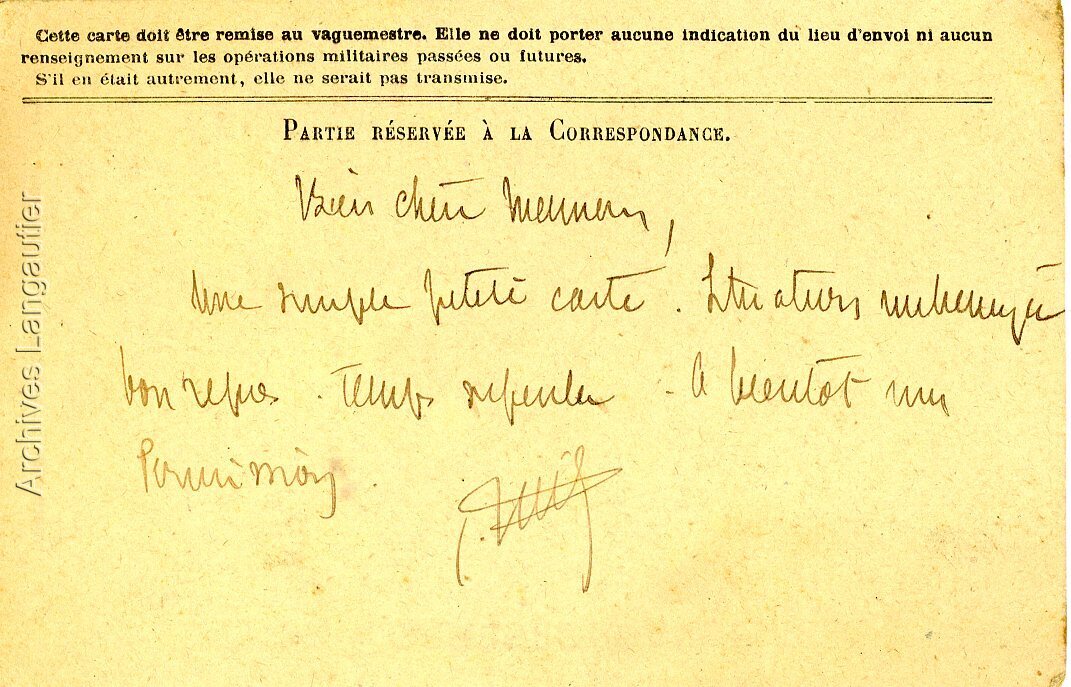 Cette carte doit être remise au vaguemestre. Elle ne doit porter aucune indication du lieu d'envoi ni aucun
renseignement sur les opérations militaires passées ou futures.
S'il en était autrement, elle ne serait pas transmise.
PARTIE RÉSERVÉE À LA CORRESPONDANCE.
Bien chère Meunon,
Une simple petite carte. Situation inchangée
bon repos. Temps superbe - A bientôt une
Permission.
Archives Langautier